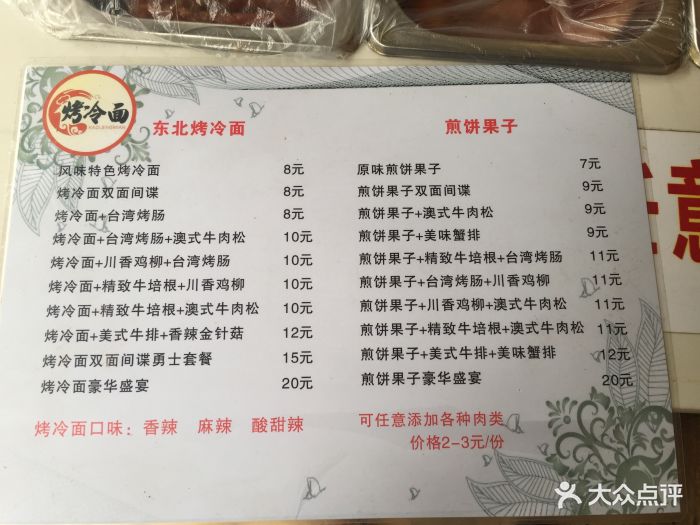 烤冷面
KAOLENGMIAN
东北烤冷面
风味特色烤冷面 8元
烤冷面双面间谍 8元
烤冷面+台湾烤肠 8元
烤冷面+台湾烤肠+澳式牛肉松 10元
烤冷面+川香鸡柳+台湾烤肠 10元
烤冷面+精致牛培根+川香鸡柳 10元
烤冷面+精致牛培根+澳式牛肉松 10元
烤冷面+美式牛排+香辣金针菇 12元
烤冷面双面间谍勇士套餐 15元
烤冷面豪华盛宴 20元
烤冷面口味：香辣 麻辣 酸甜辣
煎饼果子
原味煎饼果子 7元
煎饼果子双面间谍 9元
煎饼果子+澳式牛肉松 9元
煎饼果子+美味蟹排 9元
煎饼果子+精致牛培根+台湾烤肠 11元
煎饼果子+台湾烤肠+川香鸡柳 11元
煎饼果子+川香鸡柳+澳式牛肉松 11元
煎饼果子+精致牛培根+澳式牛肉松 11元
煎饼果子+美式牛排+美味蟹排 12元
煎饼果子豪华盛宴 20元
可任意添加各种肉类
价格2-3元/份
意
大众点评